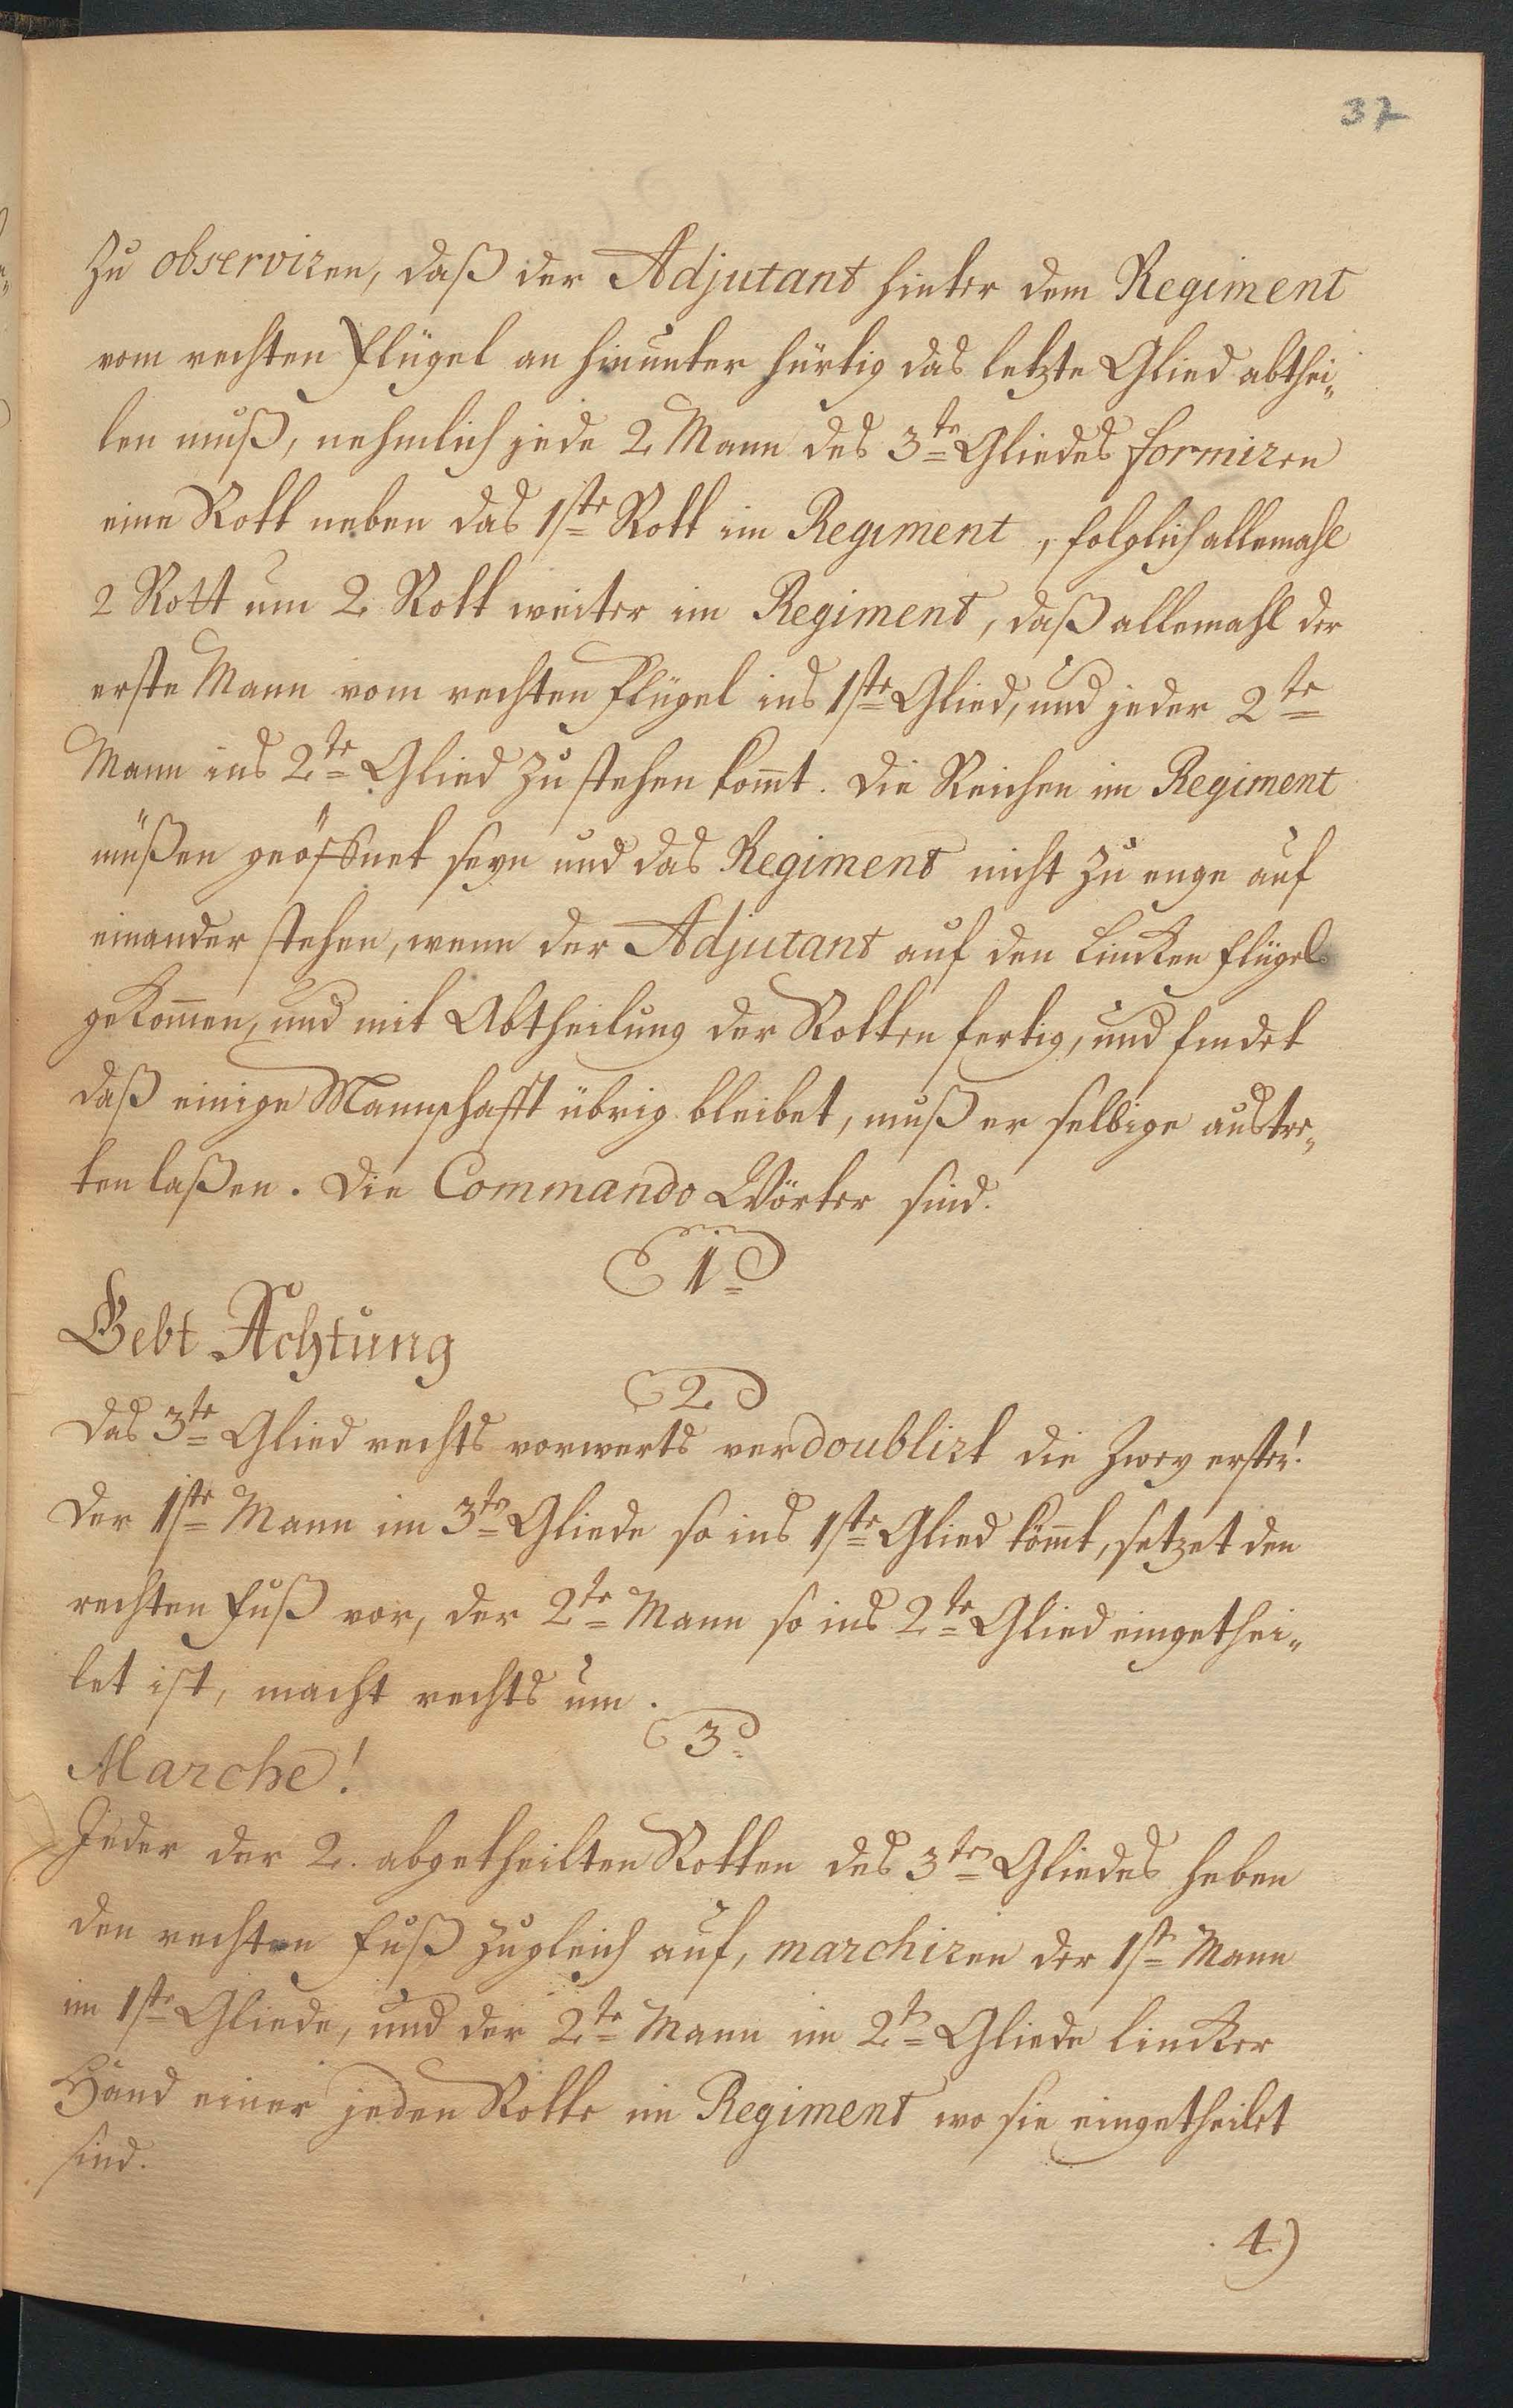 37
zu observiren, daß der Adjutant hinter dem Regiment
vom rechten Flügel an hinunter hürtig das letzte Glied abthei„
len muß, nehmlich jede 2 Mann des 3te Gliedes formiren
eine Rott neben das 1ste Rott im Regiment, folglich allemahl
2 Rott um 2 Rott weiter im Regiment, daß allemahl der
erste Mann vom rechten Flügel ins 1ste Glied, und jeder 2te
Mann ins 2te Glied zu stehen komt. Die Reichen im Regiment
müßen geöffnet seyn und das Regiment nicht zu enge auf
einander stehen, wenn der Adjutant auf den lincken Flügel
gekomen, und mit Abtheilung der Rotten fertig, und findet
daß einige Mannschafft übrig bleibet, muß er selbige austre„
ten laßen. Die Commando Wörter sind.
1
Gebt Achtung
2
Das 3te Glied rechts vorwerts verdoublirt die zwey erste!
Der 1ste Mann im 3ten Gliede so ins 1ste Glied kömt, setzet den
rechten Fuß vor, der 2te Mann so ins 2te Glied eingethei„
let ist, macht rechts um.
3
Marche!
Jeder der 2. abgetheilten Rotten des 3ten Gliedes heben
den rechten Fuß zugleich auf, marchiren der 1ste Mann
im 1ste Gliede, und der 2te Mann im 2te Gliede lincker
Hand einer jeden Rotte im Regiment wo sie eingetheilet
sind.
4)